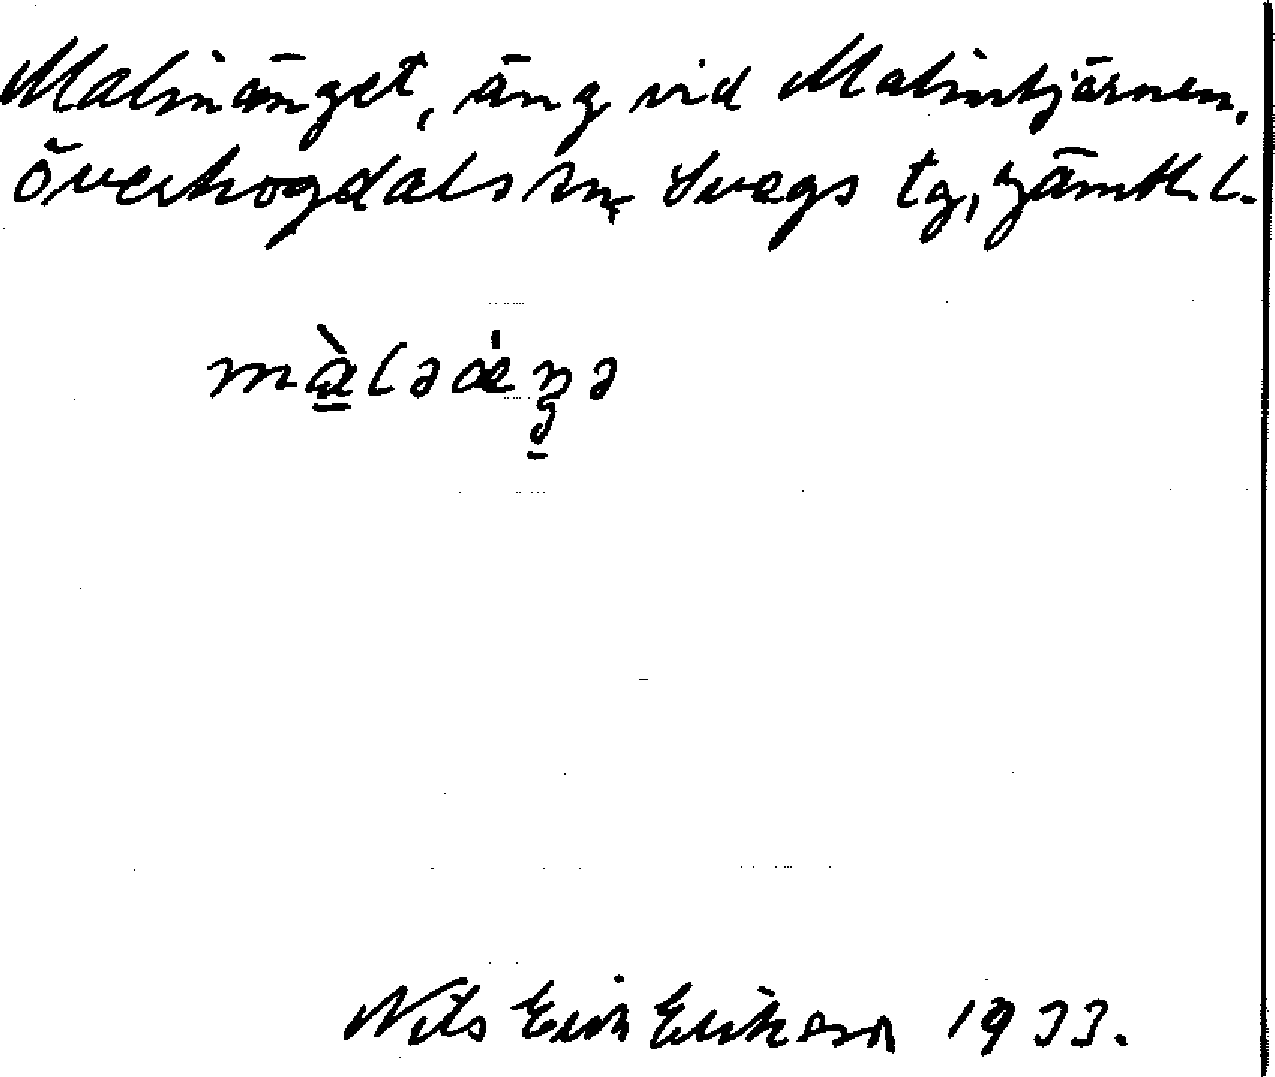 Malinänget, äng vid Malintjärnen.
Överhogdals sn, Svegs tg, Jämtl. l.
màləǽŋə
Nils Erik Erikson 1933.